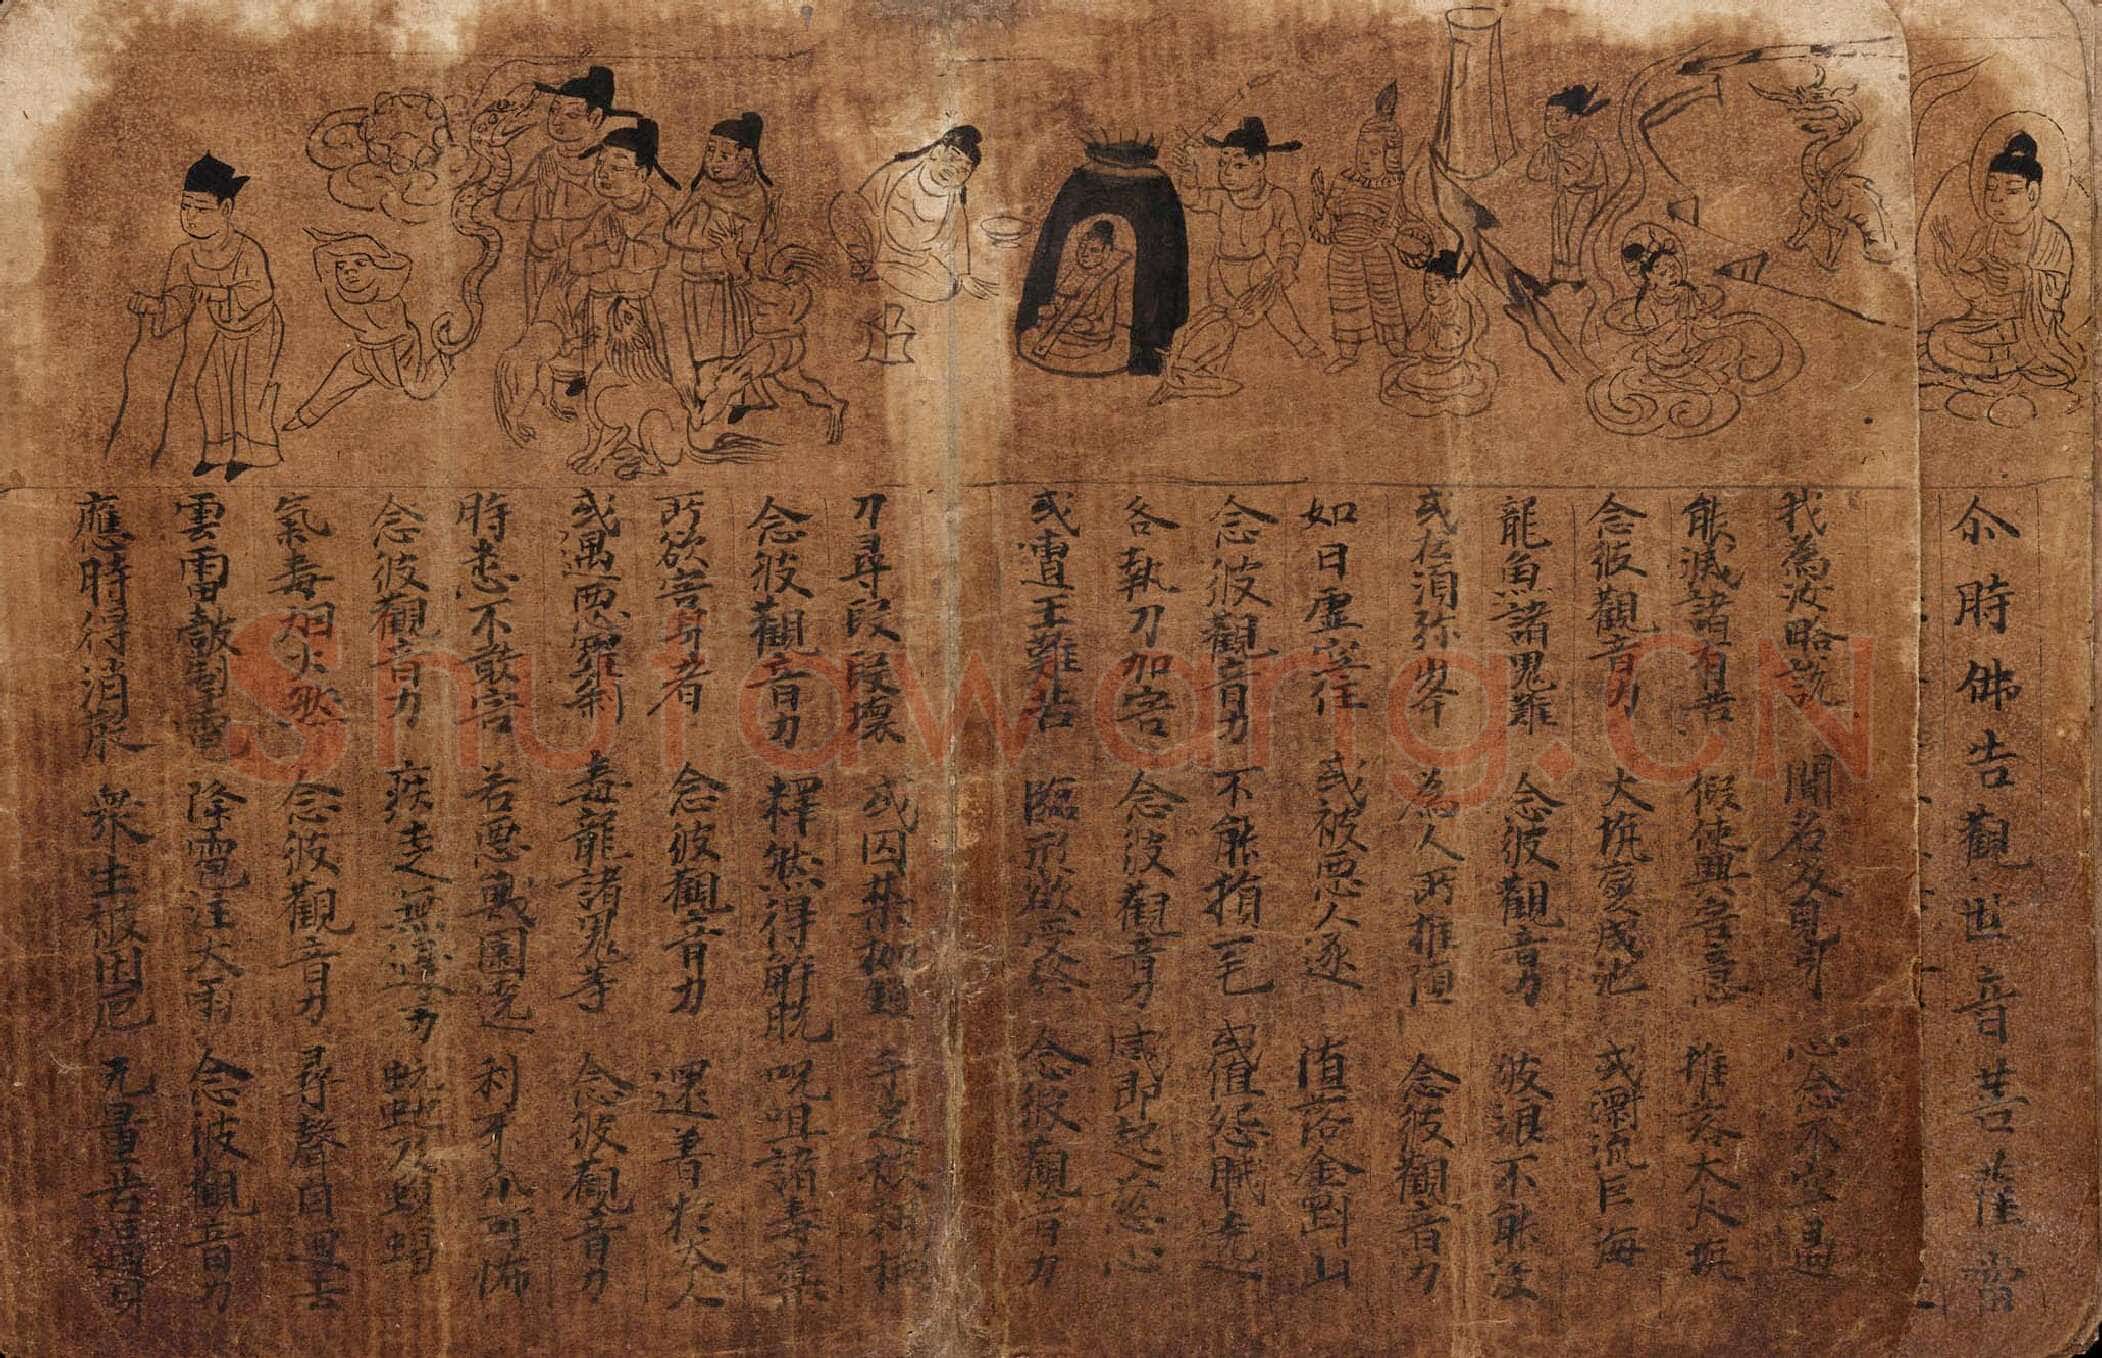 尒時佛告觀世音菩薩當
我為汝略說 聞名及見身 心念不空過
能滅諸有苦 假使興害意 推落大火坑
念彼觀音力 火坑變成池 或漂流巨海
龍魚諸鬼難 念彼觀音力 波浪不能沒
或在須弥峯 為人所推墮 念彼觀音力
如日虛空住 或被惡人逐 墮落金剛山
念彼觀音力 不能損一毛 或值怨賊遶
各執刀加害 念彼觀音力 咸即起慈心
或遭王難苦 臨刑欲壽終 念彼觀音力
刀尋段段壞 或囚禁枷鎖 手足被杻械
念彼觀音力 釋然得解脫 呪咀諸毒藥
所欲害身者 念彼觀音力 還著於本人
或遇惡羅剎 毒龍諸鬼等 念彼觀音力
時悉不敢害 若惡獸圍遶 利牙爪可怖
念彼觀音力 疾走無邊方 蚖蛇及蝮蠍
氣毒烟火然 念彼觀音力 尋聲自迴去
雲雷皷掣電 降雹注大雨 念彼觀音力
應時得消散 眾生被困厄 无量苦逼身
Shufawang.CN